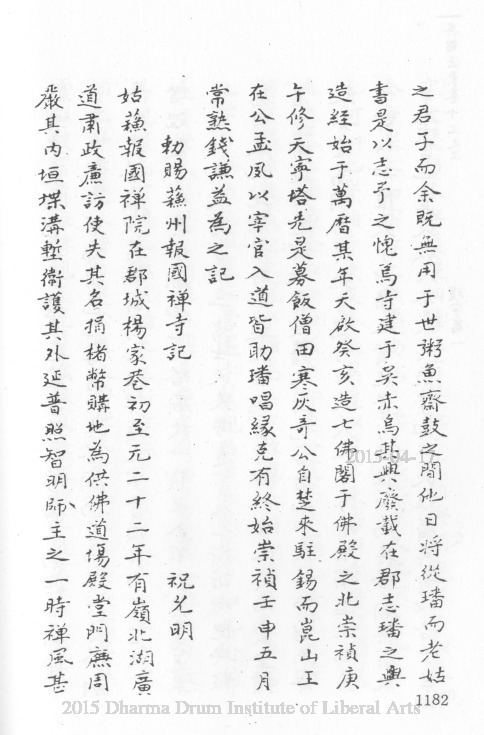 之君子而余既無用于世粥魚齋鼓之間他日将從璠而老姑
書是以志予之愧焉寺建于吳赤烏其興廢載在郡志璠之興
造經始于萬曆某年天啟癸亥造七佛閣于佛殿之北崇禎庚
午修天寧塔先是募飯僧田寒灰奇公自楚來駐錫而崑山王
在公孟夙以宰官入道皆助璠唱緣克有終始崇禎壬申五月
常熟錢謙益為之記
勅賜蘓州報國禅寺記
祝允明
姑蘓報國禅院在郡城楊家巷初至元二十二年有嶺北湖廣
道肅政廉訪使失其名捐楮幣購地為供佛道場殿堂門廡周
嚴其內垣堞溝塹衛護其外延普照智明師主之一時禅風甚
2015-04-17
1182
2015 Dharma Drum Institute of Liberal Arts